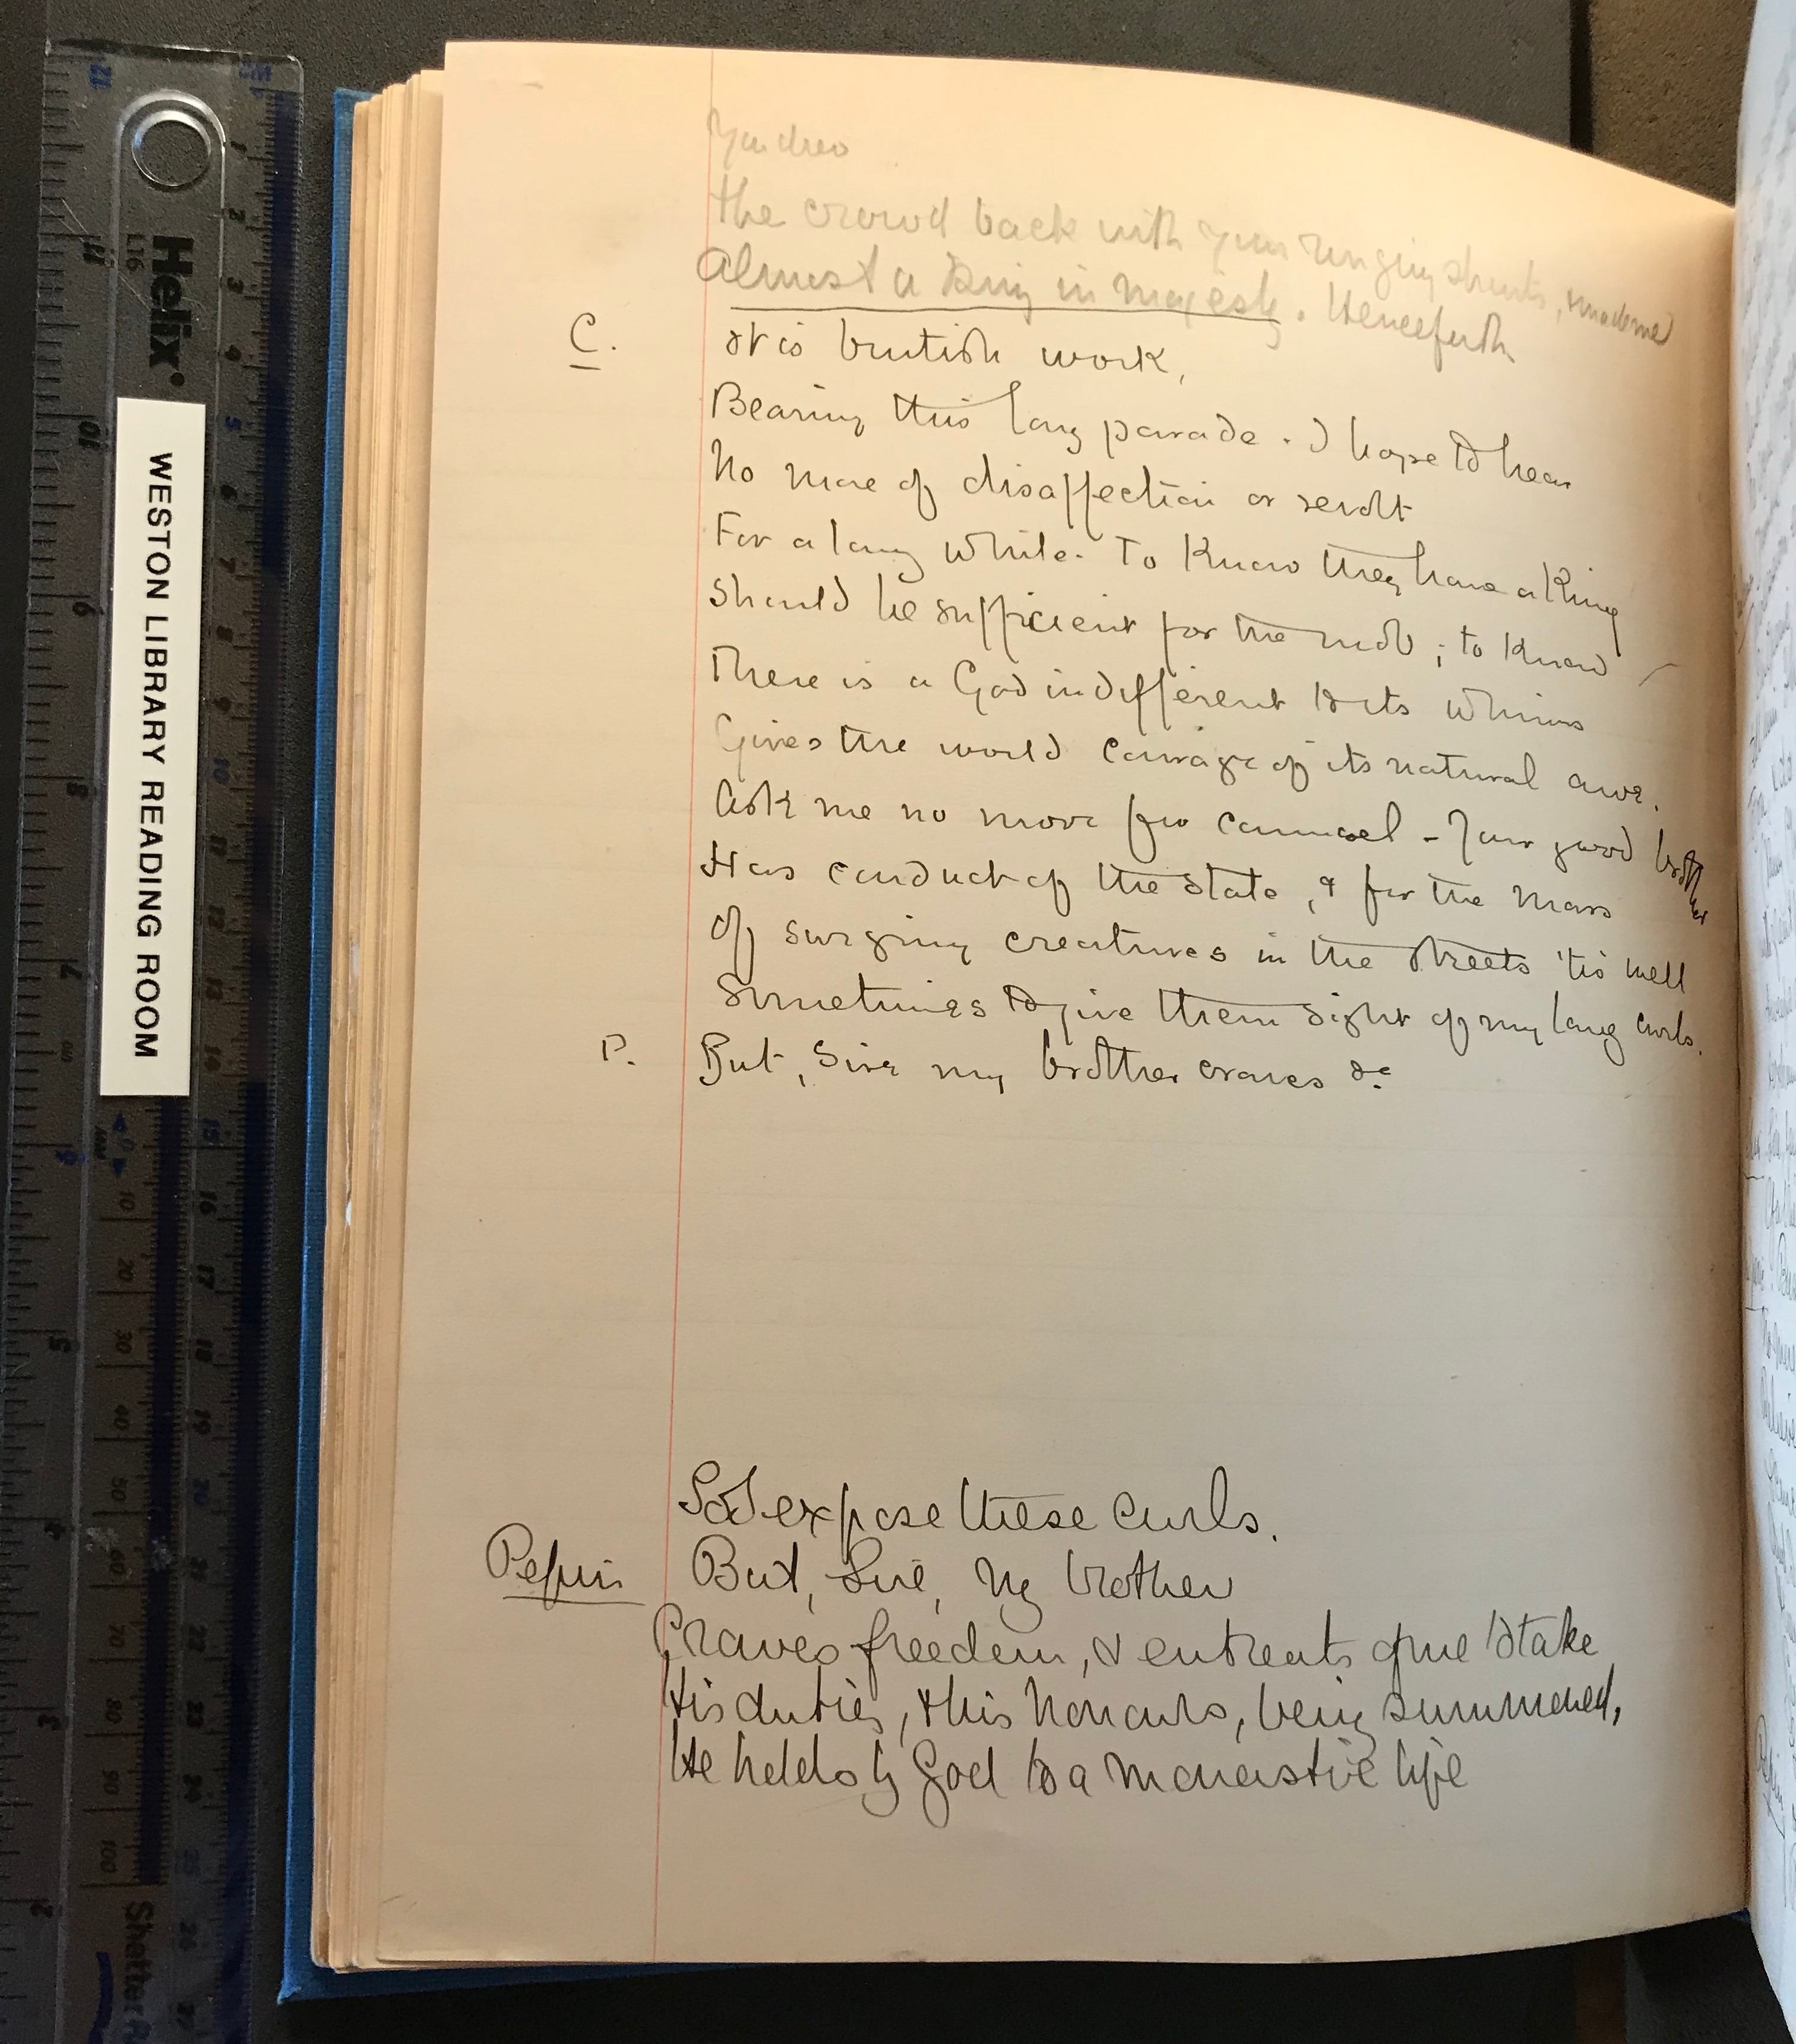 You drew
the crowd back with your ringing shouts,
almost a King in majesty. Henceforth
C. It is brutish work,
Bearing this long parade. I hope to hear
No more of disaffection or revolt
For a long while. To know they have a King
Should be sufficient for the mob; to know
There is a God indifferent to its whims
Gives the world courage of its natural awe.
Ask me no more for counsel - Your good brother
Has conduct of the state, & for the mass
Of surging creatures in the streets 'tis well
Sometimes to give them sight of my long curls.
P. But, Sire my brother craves &c
So I expose these curls.
Pepin But, Sire, my brother
Craves freedom, & entreats of me to take
His duties, & his honours, being summoned,
He holds by God to a monastic life
Helix
L16
WESTON LIBRARY READING ROOM